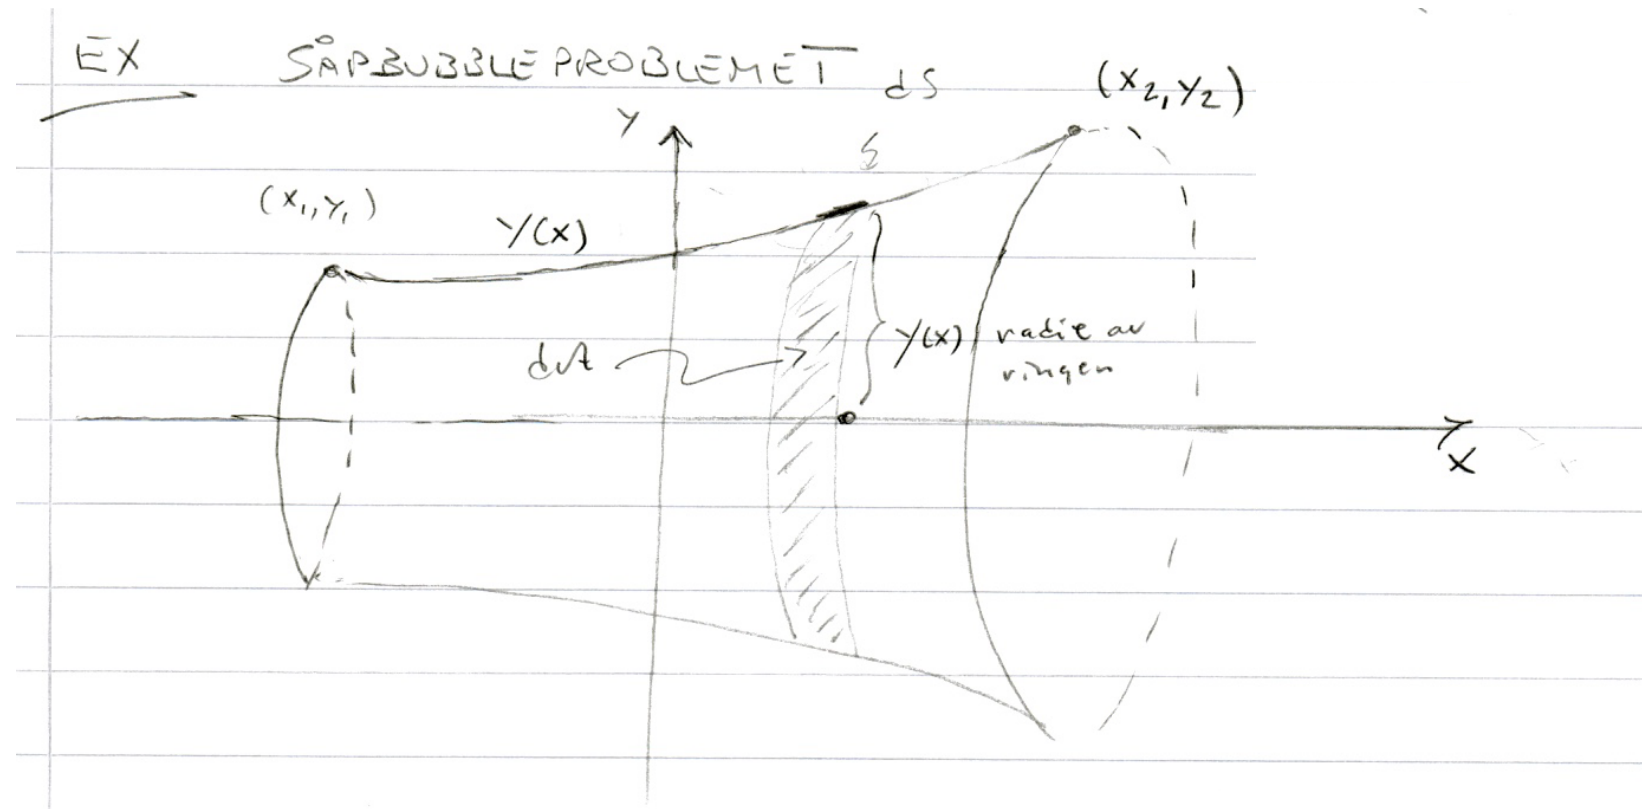 EX SÅPBUBBLEPROBLEMET
dS
(x₂, y₂)
y
(x₁, y₁)
y(x)
dA
y(x) radie av
ringen
x